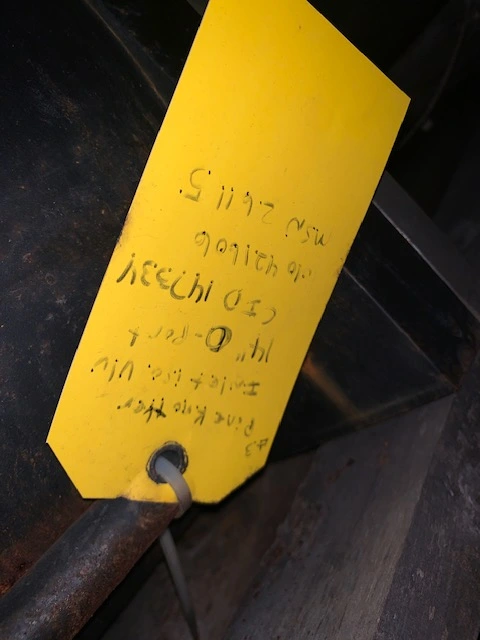 #3
Pine Knotter
Inlet Iso. Vlv
14" O-Port
CID 147334
P/O 421606
MSN 2.611.5